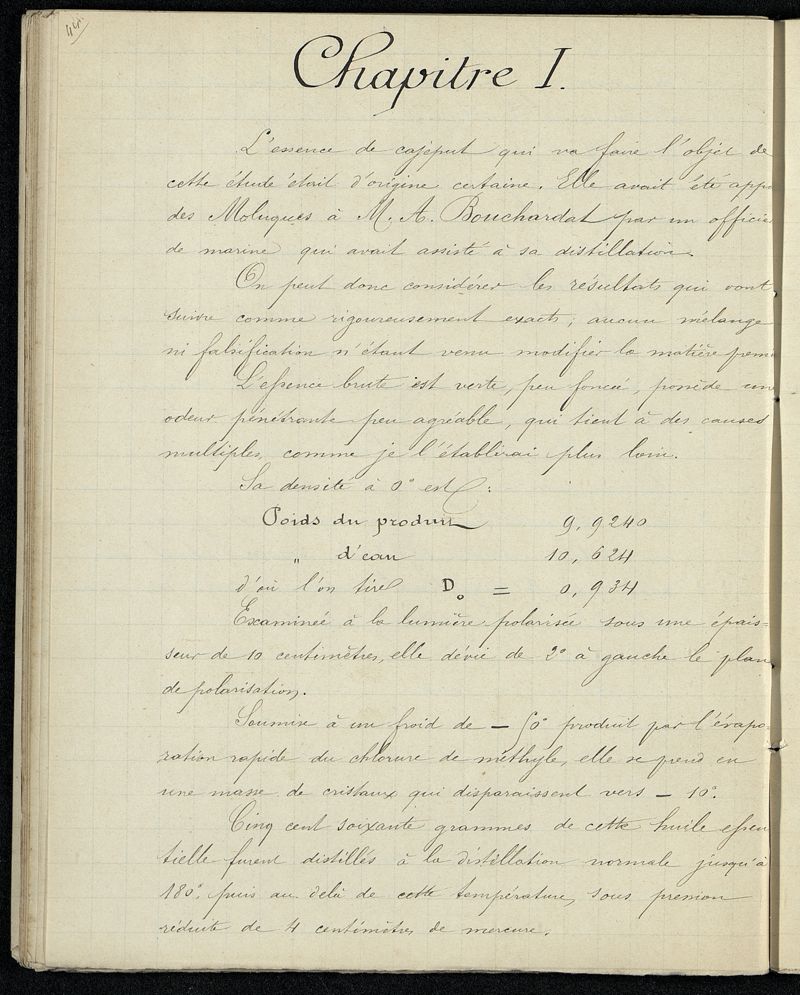 44
Chapitre I.
L'essence de cajeput qui va faire l'objet de
cette étude était d'origine certaine. Elle avait été appo
des Moluques à M. A. Bouchardat par un officie
de marine qui avait assisté à sa distillation.
On peut donc considérer les résultats qui vont
suivre comme rigoureusement exacts; aucun mélange
ni falsification n'étant venu modifier la matière premi
L'essence brute est verte, peu foncée, possède un
odeur pénétrante peu agréable, qui tient à des causes
multiples, comme je l'établirai plus loin.
Sa densité à 0° est :
Poids du produit 9,9240
" d'eau 10,624
d'où l'on tire D₀ = 0,934
Examinée à la lumière polarisée sous une épais=
seur de 10 centimètres, elle dévie de 2° à gauche le plan
de polarisation.
Soumise à un froid de – 50° produit par l'évapo-
ration rapide du chlorure de méthyle, elle se prend en
une masse de cristaux qui disparaissent vers – 10°.
Cinq cent soixante grammes de cette huile essen
tielle furent distillés à la distillation normale jusqu'à
180°, puis au delà de cette température, sous pression
réduite de 4 centimètres de mercure.